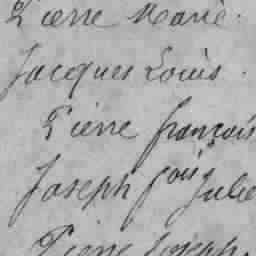 Pierre Marie.
Jacques Louis.
Pierre françois
Joseph fois Julie
Pierre Joseph.